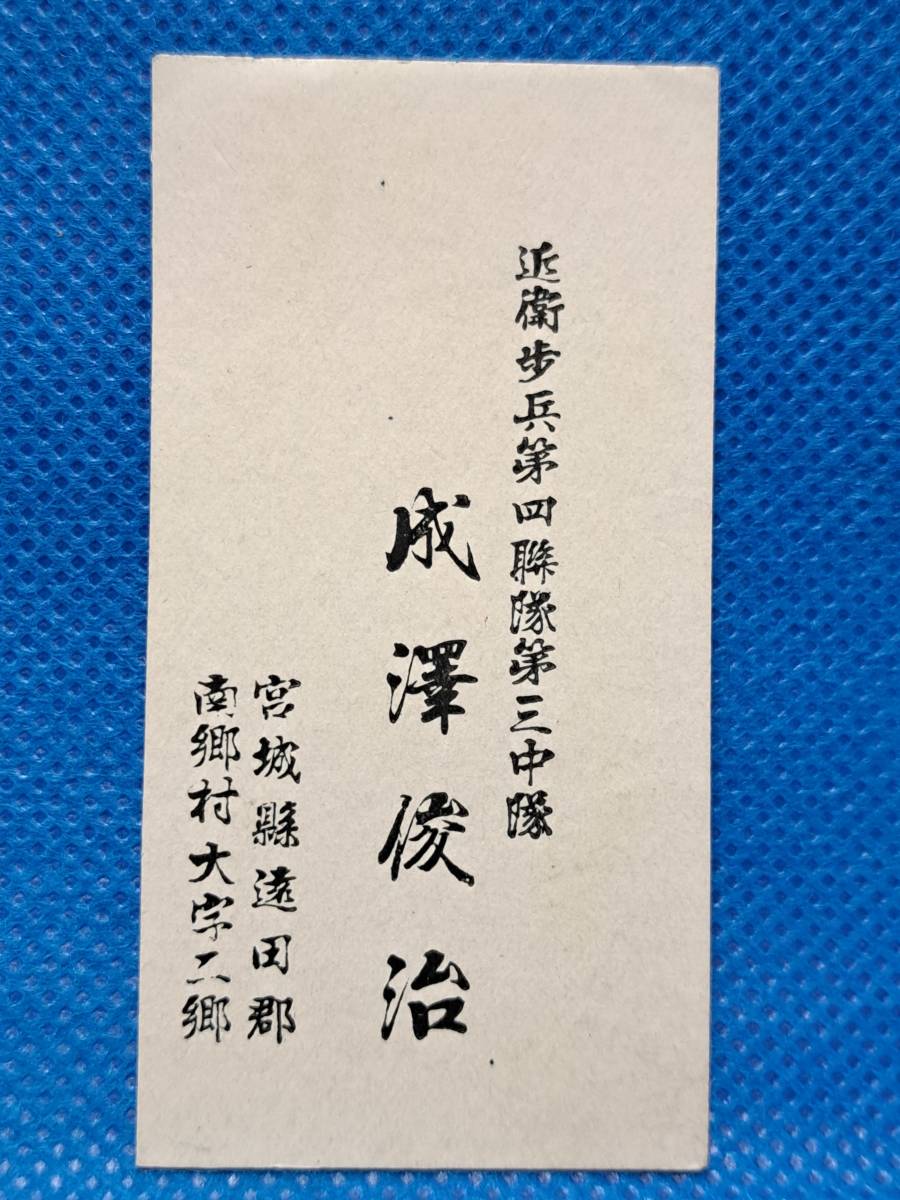 近衞歩兵第四聯隊第三中隊
成澤俊治
宮城縣遠田郡
南郷村大字二郷